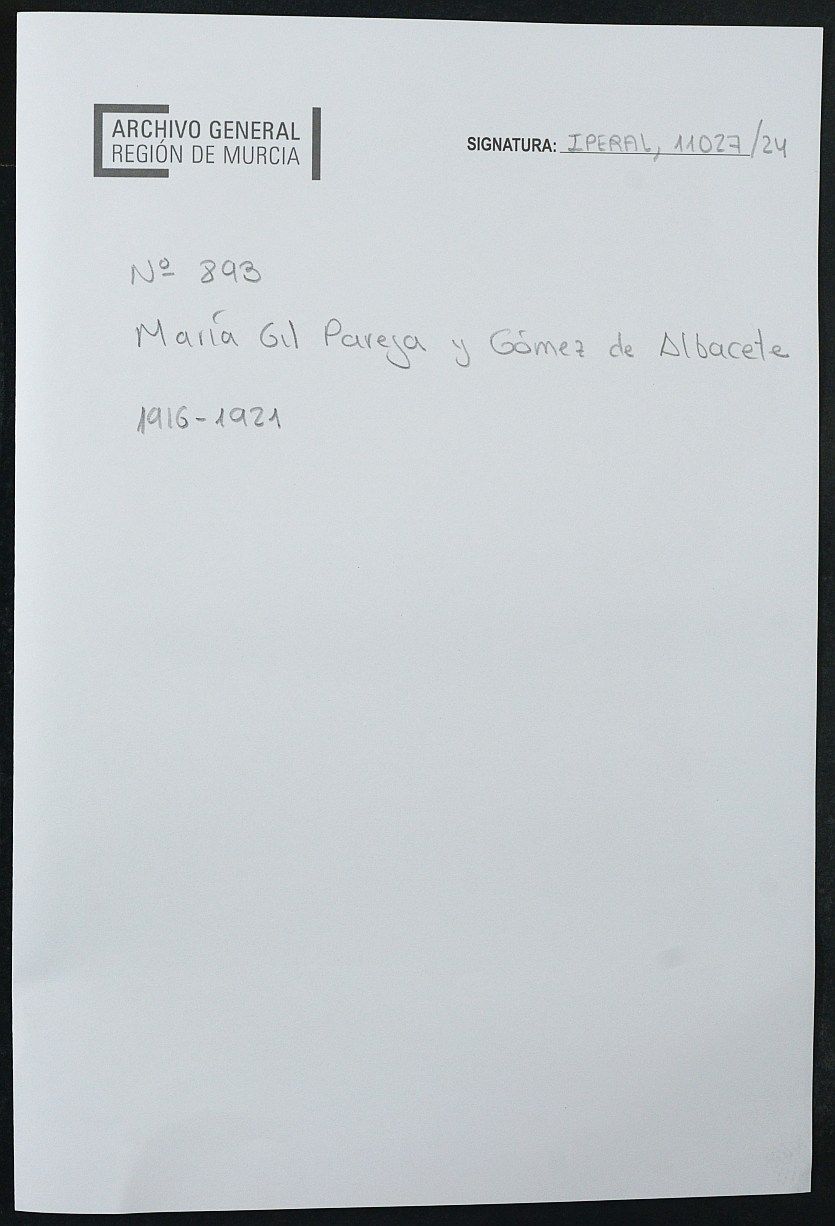 ARCHIVO GENERAL
REGIÓN DE MURCIA
SIGNATURA: IPERAL, 11027/24
Nº 893
María Gil Pareja y Gómez de Albacete
1916-1921